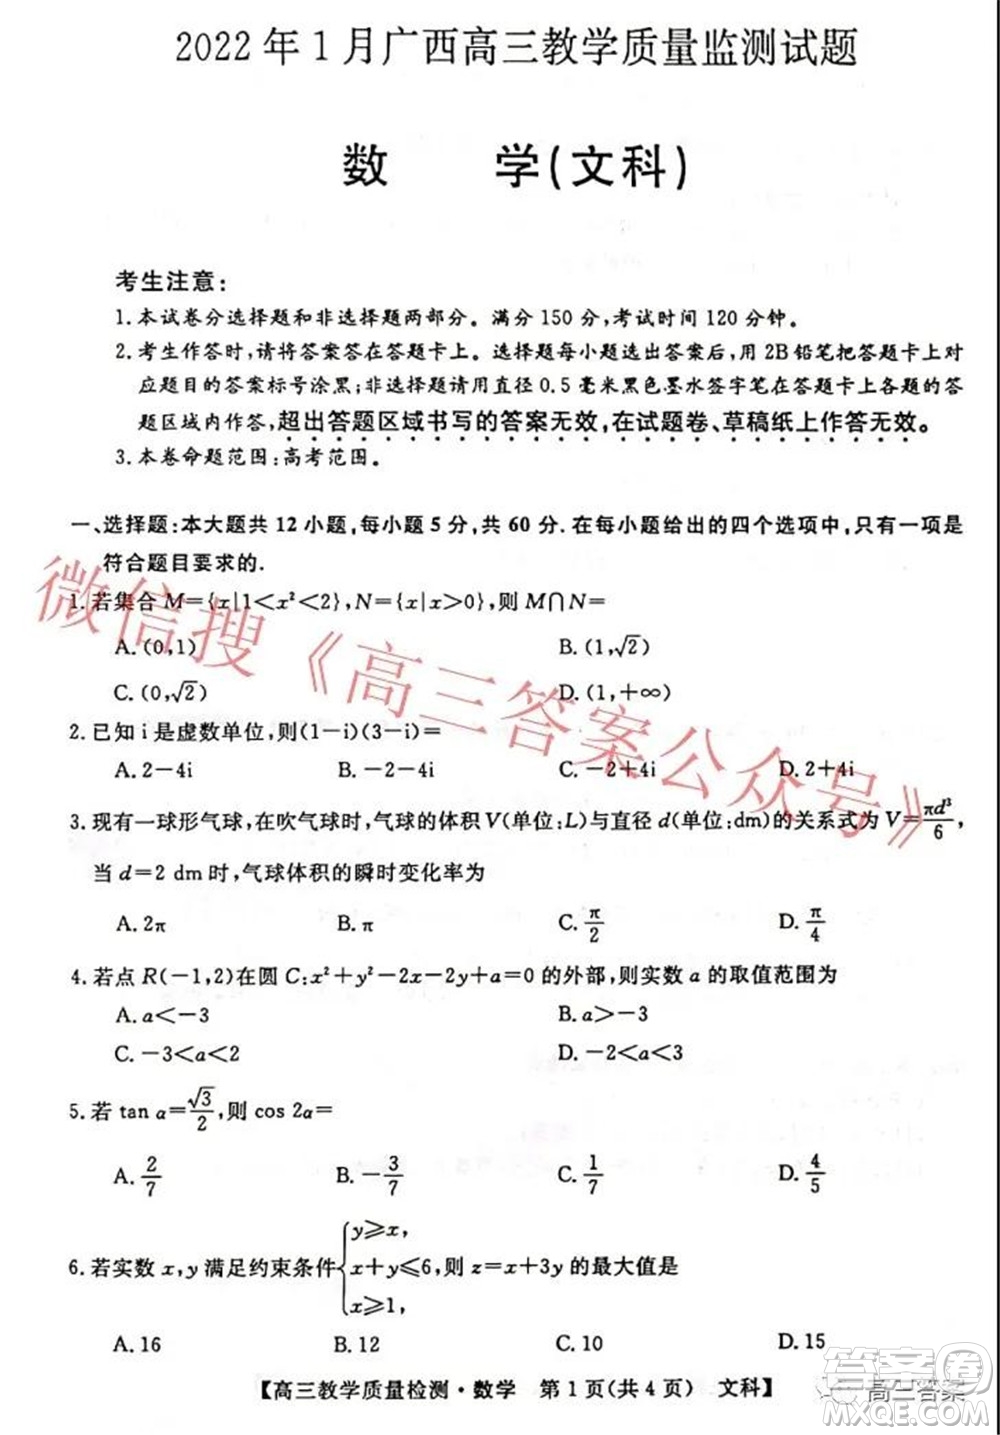 2022年1月广西高三教学质量监测试题
数 学(文科)
考生注意:
1.本试卷分选择题和非选择题两部分。满分150分,考试时间120分钟。
2.考生作答时,请将答案答在答题卡上。选择题每小题选出答案后,用2B铅笔把答题卡上对
应题目的答案标号涂黑;非选择题请用直径0.5毫米黑色墨水签字笔在答题卡上各题的答
题区域内作答,超出答题区域书写的答案无效,在试题卷、草稿纸上作答无效。
3.本卷命题范围:高考范围。
一、选择题:本大题共12小题,每小题5分,共60分.在每小题给出的四个选项中,只有一项是
符合题目要求的.
1.若集合M={x|1<x²<2},N={x|x>0},则M∩N=
A.(0,1) B.(1,√2)
C.(0,√2) D.(1,+∞)
2.已知i是虚数单位,则(1-i)(3-i)=
A.2-4i B.-2-4i C.-2+4i D.2+4i
3.现有一球形气球,在吹气球时,气球的体积V(单位:L)与直径d(单位:dm)的关系式为V=πd³/6,
当d=2 dm时,气球体积的瞬时变化率为
A.2π B.π C.π/2 D.π/4
4.若点R(-1,2)在圆C:x²+y²-2x-2y+a=0的外部,则实数a的取值范围为
A.a<-3 B.a>-3
C.-3<a<2 D.-2<a<3
5.若tan α=√3/2,则cos 2α=
A.2/7 B.-3/7 C.1/7 D.4/5
6.若实数x,y满足约束条件{y≥x, x+y≤6, x≥1, 则z=x+3y的最大值是
A.16 B.12 C.10 D.15
【高三教学质量检测·数学 第1页(共4页) 文科】
微信搜《高三答案公众号》
高三答案